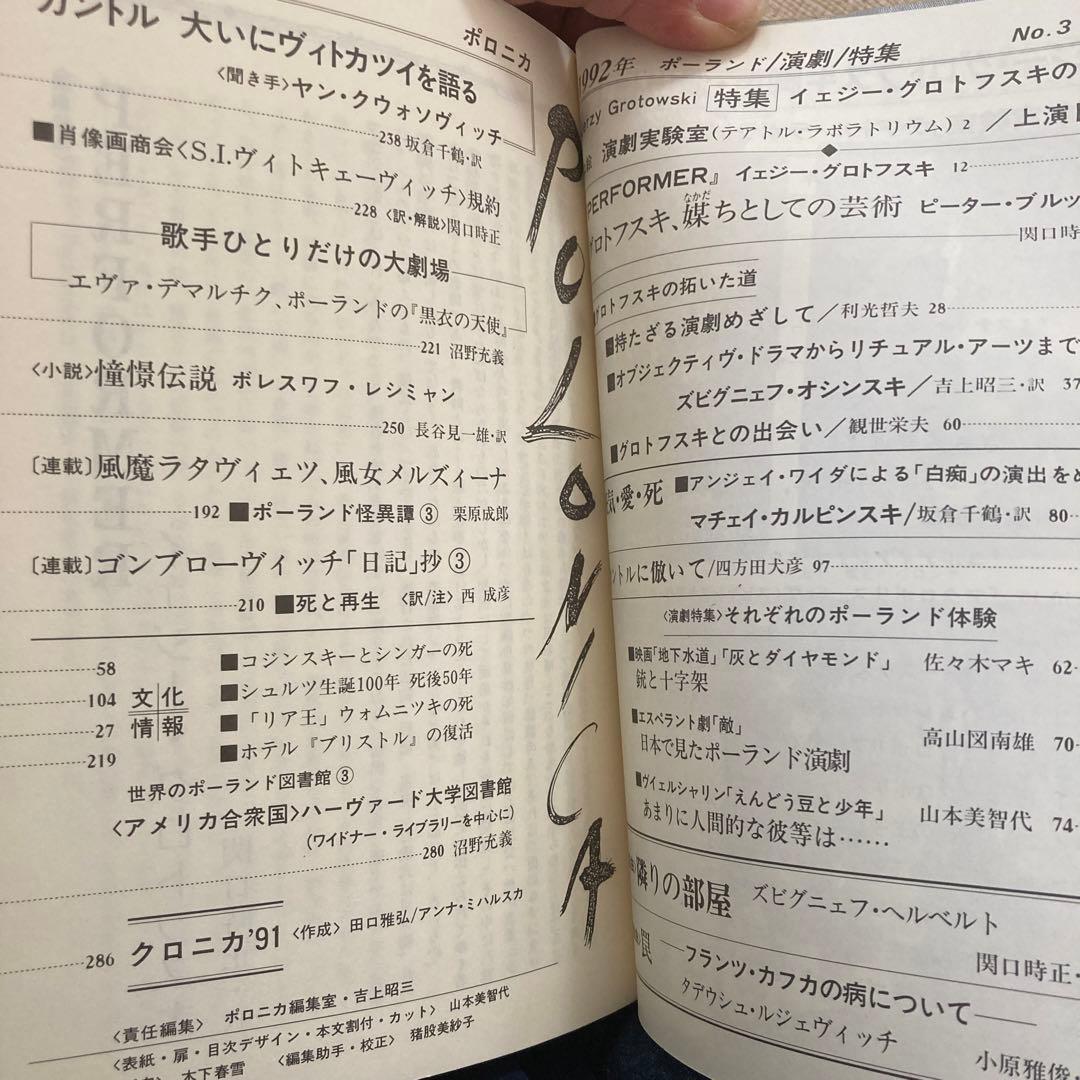 カントル 大いにヴィトカツイを語る
ポロニカ
〈聞き手〉ヤン・クウォソヴィッチ
238 坂倉千鶴・訳
■肖像画商会〈S.I.ヴィトキェーヴィッチ〉規約
228 〈訳・解説〉関口時正
歌手ひとりだけの大劇場
エヴァ・デマルチク、ポーランドの『黒衣の天使』
221 沼野充義
〈小説〉憧憬伝説 ボレスワフ・レシミャン
250 長谷見一雄・訳
〔連載〕風魔ラタヴィェツ、風女メルズィーナ
192 ■ポーランド怪異譚③ 栗原成郎
〔連載〕ゴンブローヴィッチ「日記」抄③
210 ■死と再生 〈訳/注〉西 成彦
58 ■コジンスキーとシンガーの死
104 文化 ■シュルツ生誕100年 死後50年
27 情報 ■「リア王」ウォムニツキの死
219 ■ホテル『ブリストル』の復活
世界のポーランド図書館③
〈アメリカ合衆国〉ハーヴァード大学図書館
(ワイドナー・ライブラリーを中心に)
280 沼野充義
286 クロニカ'91 〈作成〉田口雅弘/アンナ・ミハルスカ
〈責任編集〉 ポロニカ編集室・吉上昭三
〈表紙・扉・目次デザイン・本文割付・カット〉 山本美智代
木下春雪 〈編集助手・校正〉 猪股美紗子
POLONICA
1992年 ポーランド/演劇/特集 No.3
erzy Grotowski 特集 イェジー・グロトフスキの
演劇実験室(テアトル・ラボラトリウム) 2 /上演
PERFORMER』 イェジー・グロトフスキ 12
グロトフスキ、媒ちとしての芸術 ピーター・ブルッ
なかだ
関口時
グロトフスキの拓いた道
■持たざる演劇めざして/利光哲夫 28
■オブジェクティヴ・ドラマからリチュアル・アーツまで
ズビグニェフ・オシンスキ/吉上昭三・訳 37
■グロトフスキとの出会い/観世栄夫 60
・愛・死 ■アンジェイ・ワイダによる「白痴」の演出をめ
マチェイ・カルピンスキ/坂倉千鶴・訳 80
ントルに倣いて/四方田犬彦 97
〈演劇特集〉それぞれのポーランド体験
■映画「地下水道」「灰とダイヤモンド」 佐々木マキ 62
銃と十字架
■エスペラント劇「敵」
日本で見たポーランド演劇 高山図南雄 70
■ヴィェルシャリン「えんどう豆と少年」 山本美智代 74
あまりに人間的な彼等は……
隣りの部屋 ズビグニェフ・ヘルベルト
関口時正・
罠 ―フランツ・カフカの病について―
タデウシュ・ルジェヴィッチ
小原雅俊・